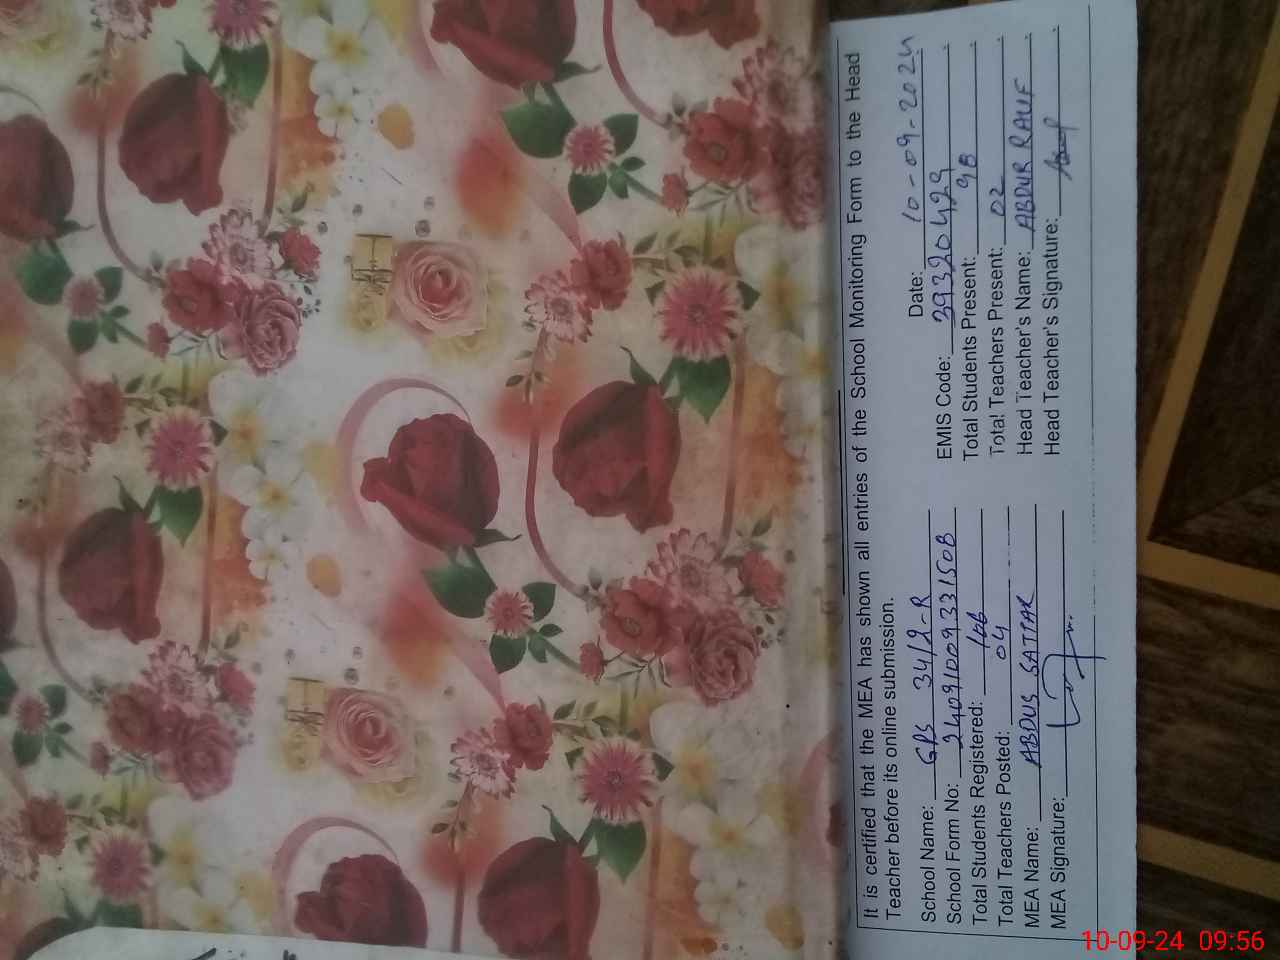 It is certified that the MEA has shown all entries of the School Monitoring Form to the Head
Teacher before its online submission.
School Name: GPS 34/2-R Date: 10-09-2024
School Form No: EMIS Code: 39320429
Total Students Registered: 166 Total Students Present: 98
Total Teachers Posted: 04 Total Teachers Present: 02
MEA Name: ABDUS SATTAR Head Teacher's Name: ABDUR RAUF
MEA Signature: Head Teacher's Signature:
10-09-24 09:56